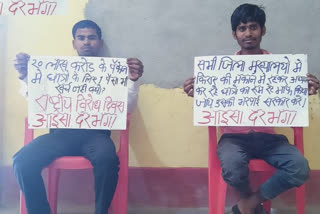 दरभंगा
२० लाख करोड़ के पैकेज
में छात्रों के लिए 1 पैसा भी
क्यों?
राष्ट्रीय विरोध दिवस
आइसा दरभंगा
सभी जिला मुख्यालयों में
किराए के मकानों में रहकर
कर रहे छात्रों का रूम रेंट माफ किया
जाये इसकी सरकार करें।
आइसा दरभंगा